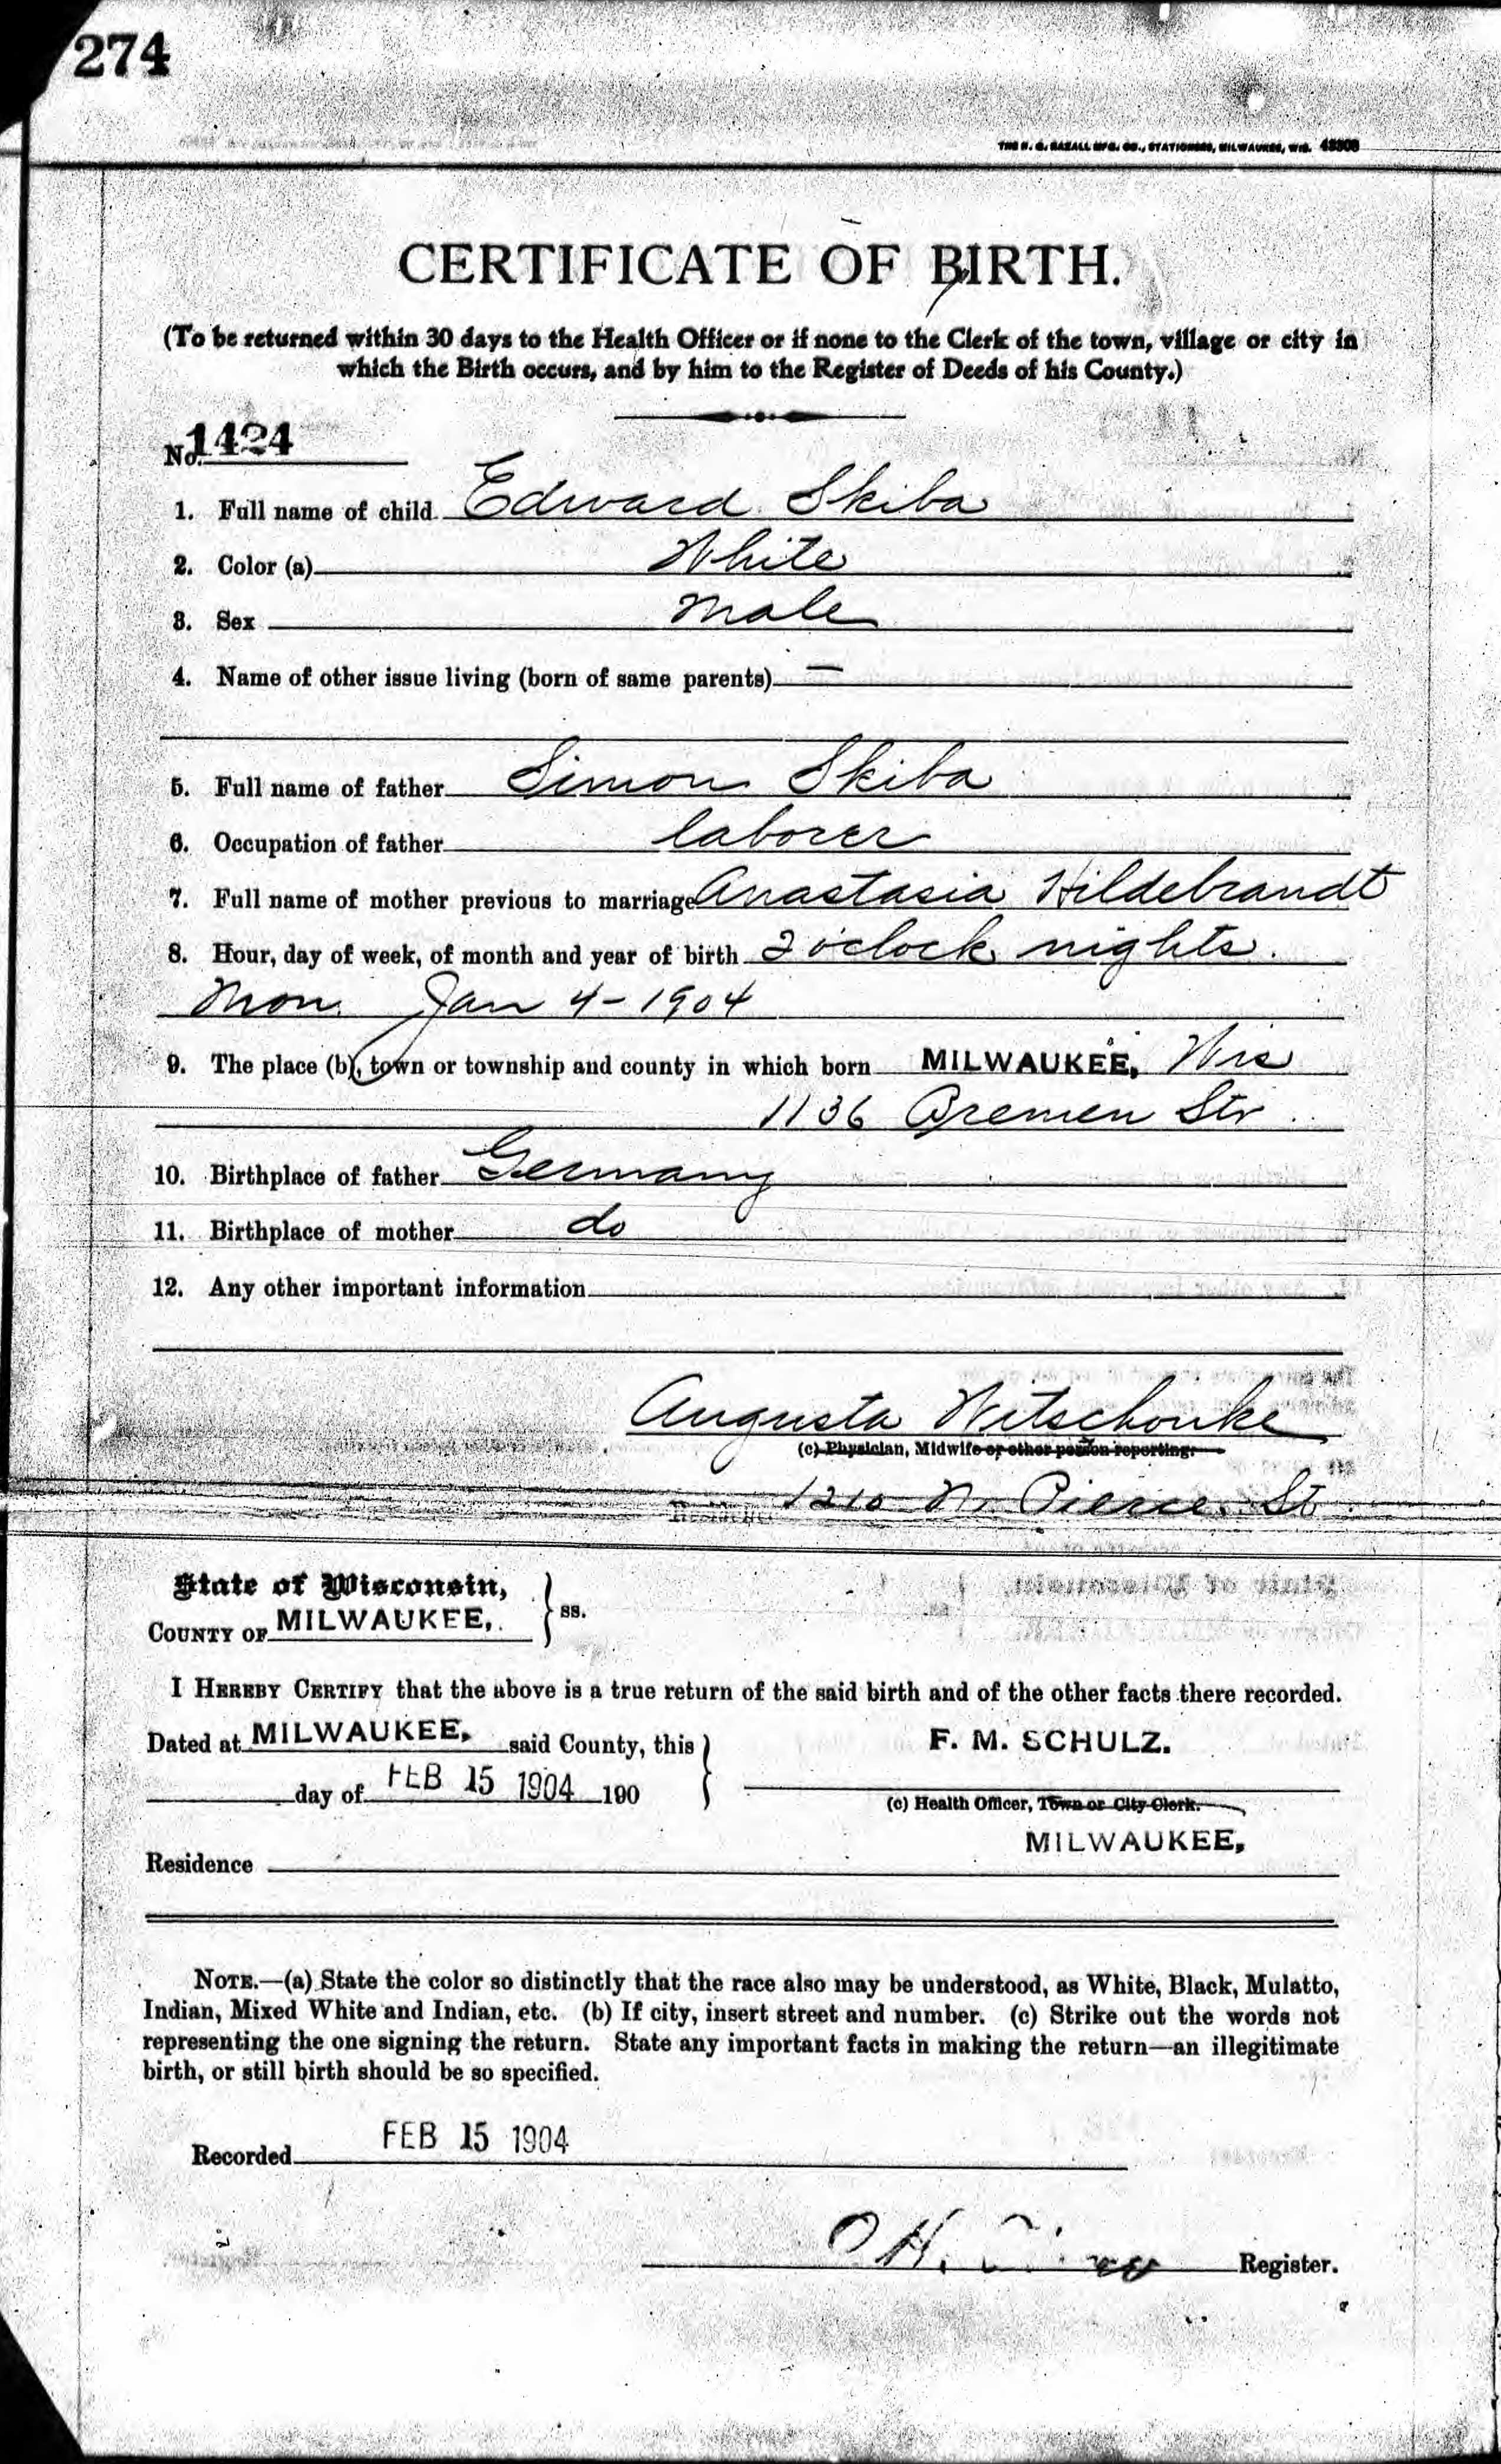 274
THE H. G. RAZALL MFG. CO., STATIONERS, MILWAUKEE, WIS. 48308
CERTIFICATE OF BIRTH.
(To be returned within 30 days to the Health Officer or if none to the Clerk of the town, village or city in
which the Birth occurs, and by him to the Register of Deeds of his County.)
No. 1424
1. Full name of child Edward Skiba
2. Color (a) White
3. Sex Male
4. Name of other issue living (born of same parents) —
5. Full name of father Simon Skiba
6. Occupation of father laborer
7. Full name of mother previous to marriage Anastasia Hildebrandt
8. Hour, day of week, of month and year of birth 2 o'clock nights.
Mon. Jan 4-1904
9. The place (b), town or township and county in which born MILWAUKEE, Wis
1136 Bremen Str.
10. Birthplace of father Germany
11. Birthplace of mother do
12. Any other important information
Augusta Witschonke
(c) Physician, Midwife or other person reporting.
Residence 1210 N. Pierce St
State of Wisconsin,
COUNTY OF MILWAUKEE, } ss.
I HEREBY CERTIFY that the above is a true return of the said birth and of the other facts there recorded.
Dated at MILWAUKEE, said County, this } F. M. SCHULZ.
day of FEB 15 1904 190
(c) Health Officer, Town or City Clerk.
MILWAUKEE,
Residence
NOTE.—(a) State the color so distinctly that the race also may be understood, as White, Black, Mulatto,
Indian, Mixed White and Indian, etc. (b) If city, insert street and number. (c) Strike out the words not
representing the one signing the return. State any important facts in making the return—an illegitimate
birth, or still birth should be so specified.
Recorded FEB 15 1904
Register.